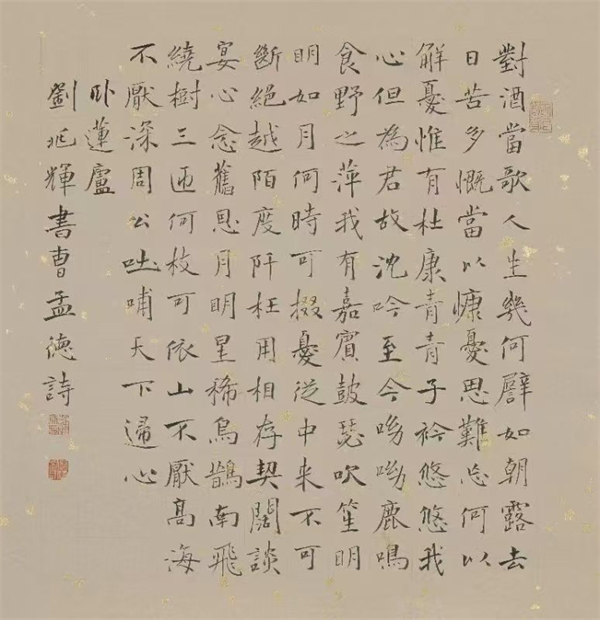 對酒當歌人生幾何譬如朝露去
日苦多慨當以慷憂思難忘何以
解憂惟有杜康青青子衿悠悠我
心但為君故沈吟至今呦呦鹿鳴
食野之萍我有嘉賓鼓瑟吹笙明
明如月何時可掇憂從中来不可
斷絕越陌度阡枉用相存契闊談
宴心念舊恩月明星稀烏鵲南飛
繞樹三匝何枝可依山不厭高海
不厭深周公吐哺天下歸心
卧蓮廬
劉兆輝書曹孟德詩